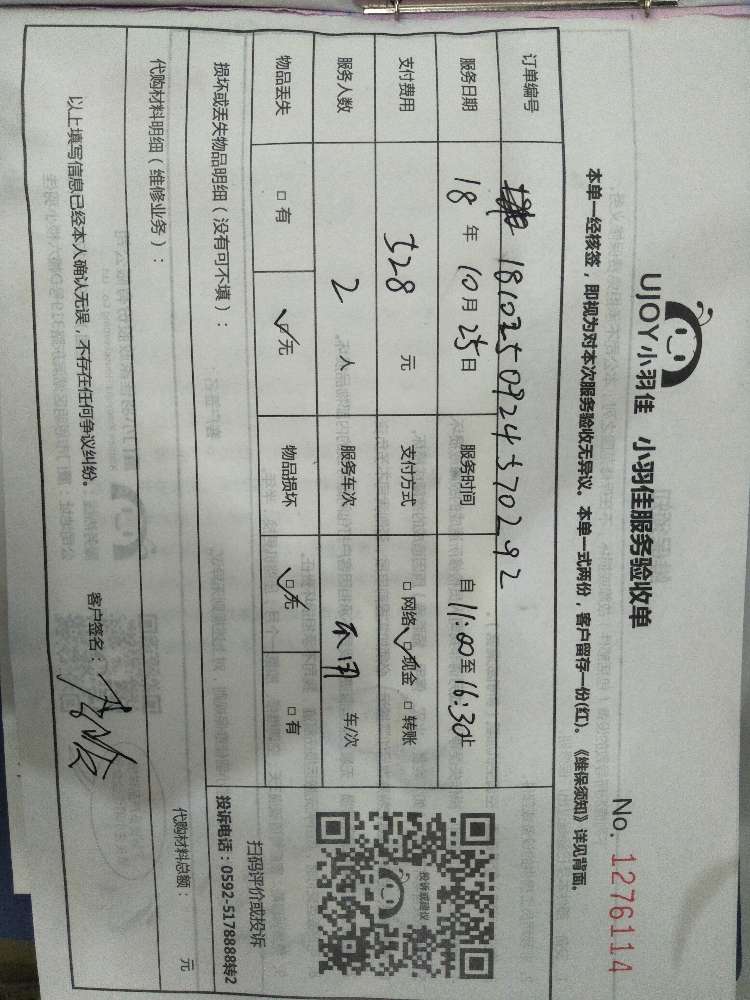 UJOY小羽佳 小羽佳服务验收单
No. 1276114
本单一经核签，即视为对本次服务验收无异议。本单一式两份，客户留存一份(红)。《维保须知》详见背面。
订单编号 1810250924370292
服务日期 18 年 10 月 25 日 服务时间 自 11:00 至 16:30 止
支付费用 328 元 支付方式 □ 网络 ☑ 现金 □ 转账
服务人数 2 人 服务车次 不用 车/次
物品丢失 □ 有 ☑ 无 物品损坏 ☑ 无 □ 有
投诉或建议
扫码评价或投诉
投诉电话：0592-5178888转2
损坏或丢失物品明细（没有可不填）：
代购材料明细（维修业务）：
代购材料总额： 元
以上填写信息已经本人确认无误，不存在任何争议纠纷。
客户签名：